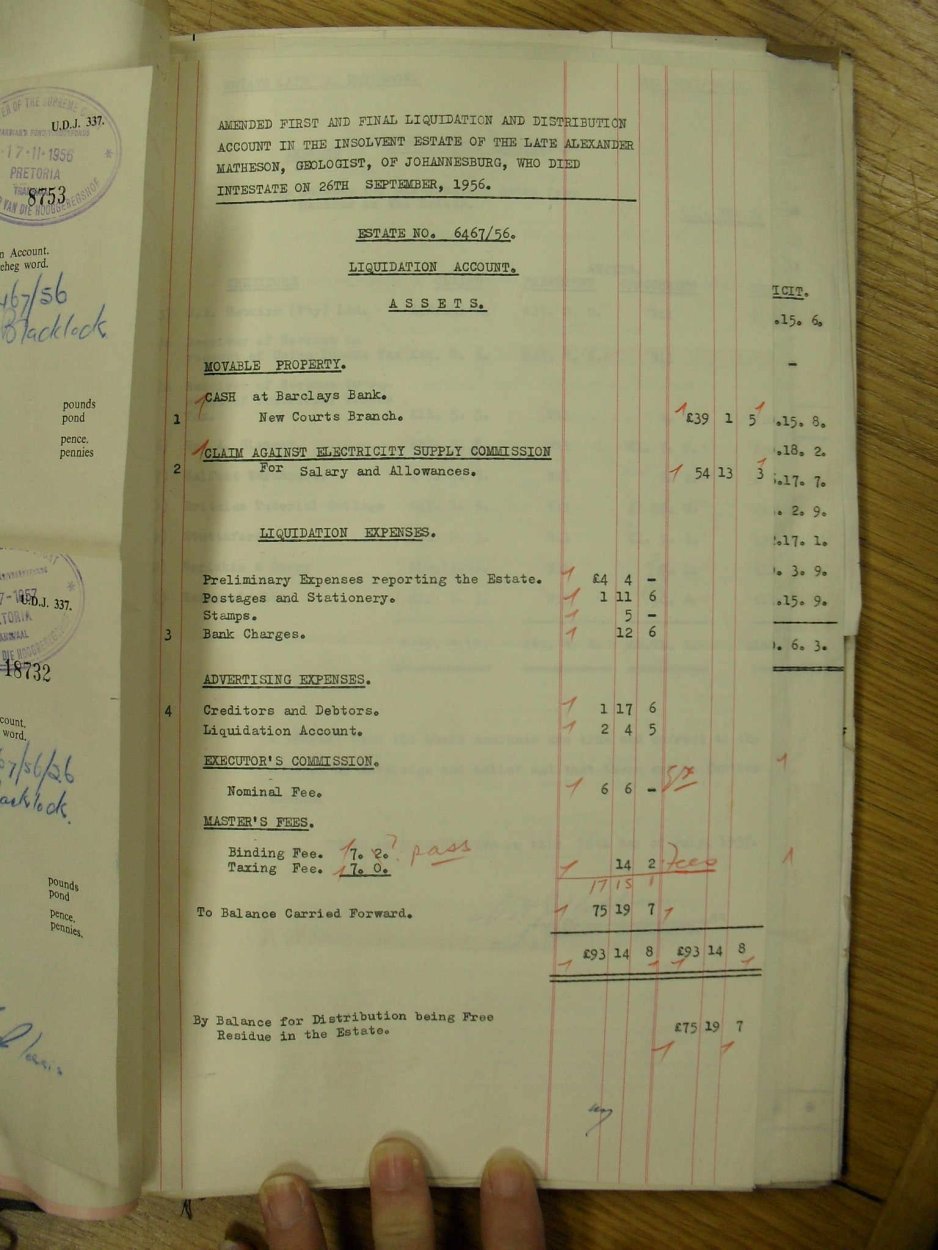 U.D.J. 337.
17-11-1956
PRETORIA
8753
n Account.
eheg word.
467/56
Blacklock
pounds
pond
pence.
pennies
U.D.J. 337.
18732
count.
word.
67/56/26
acklock.
pounds
pond
pence,
pennies.
AMENDED FIRST AND FINAL LIQUIDATION AND DISTRIBUTION
ACCOUNT IN THE INSOLVENT ESTATE OF THE LATE ALEXANDER
MATHESON, GEOLOGIST, OF JOHANNESBURG, WHO DIED
INTESTATE ON 26TH SEPTEMBER, 1956.
ESTATE NO. 6467/56.
LIQUIDATION ACCOUNT.
A S S E T S.
MOVABLE PROPERTY.
CASH at Barclays Bank.
1 New Courts Branch. £39 1 5
CLAIM AGAINST ELECTRICITY SUPPLY COMMISSION
2 For Salary and Allowances. 54 13 3
LIQUIDATION EXPENSES.
Preliminary Expenses reporting the Estate. £4 4 -
Postages and Stationery. 1 11 6
Stamps. 5 -
3 Bank Charges. 12 6
ADVERTISING EXPENSES.
4 Creditors and Debtors. 1 17 6
Liquidation Account. 2 4 5
EXECUTOR'S COMMISSION.
Nominal Fee. 6 6 -
MASTER'S FEES.
Binding Fee. 7. 2. ? pass
Taxing Fee. 7. 0. 14 2 Fees
17 15 1
To Balance Carried Forward. 75 19 7
£93 14 8 £93 14 8
By Balance for Distribution being Free
Residue in the Estate. £75 19 7
ICIT.
.15. 6.
-
.15. 8.
.18. 2.
.17. 7.
. 2. 9.
.17. 1.
. 3. 9.
.15. 9.
. 6. 3.